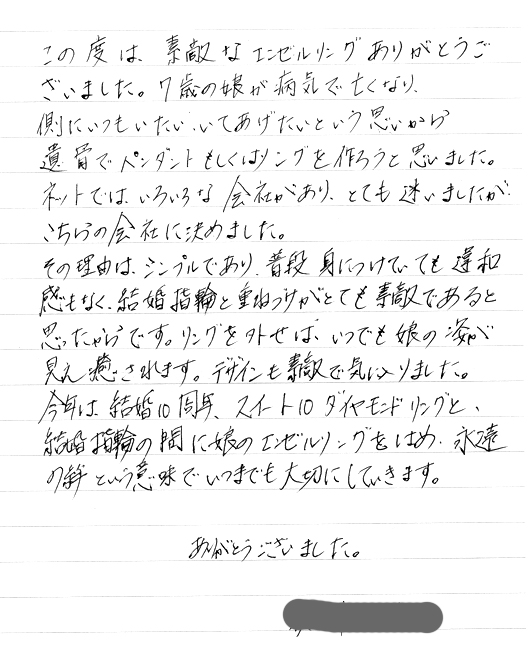 この度は、素敵なエンゼルリングありがとうご
ざいました。7歳の娘が病気で亡くなり、
側にいつもいたい、いてあげたいという思いから
遺骨でペンダントもしくはリングを作ろうと思いました。
ネットでは、いろいろな会社があり、とても迷いましたが、
こちらの会社に決めました。
その理由は、シンプルであり、普段身につけていても違和
感もなく、結婚指輪と重ねづけがとても素敵であると
思ったからです。リングを外せば、いつでも娘の姿が
見え癒されます。デザインも素敵で気に入りました。
今年は、結婚10周年、スイート10ダイヤモンドリングと、
結婚指輪の間に娘のエンゼルリングをはめ、永遠
の絆という意味でいつまでも大切にしていきます。
ありがとうございました。